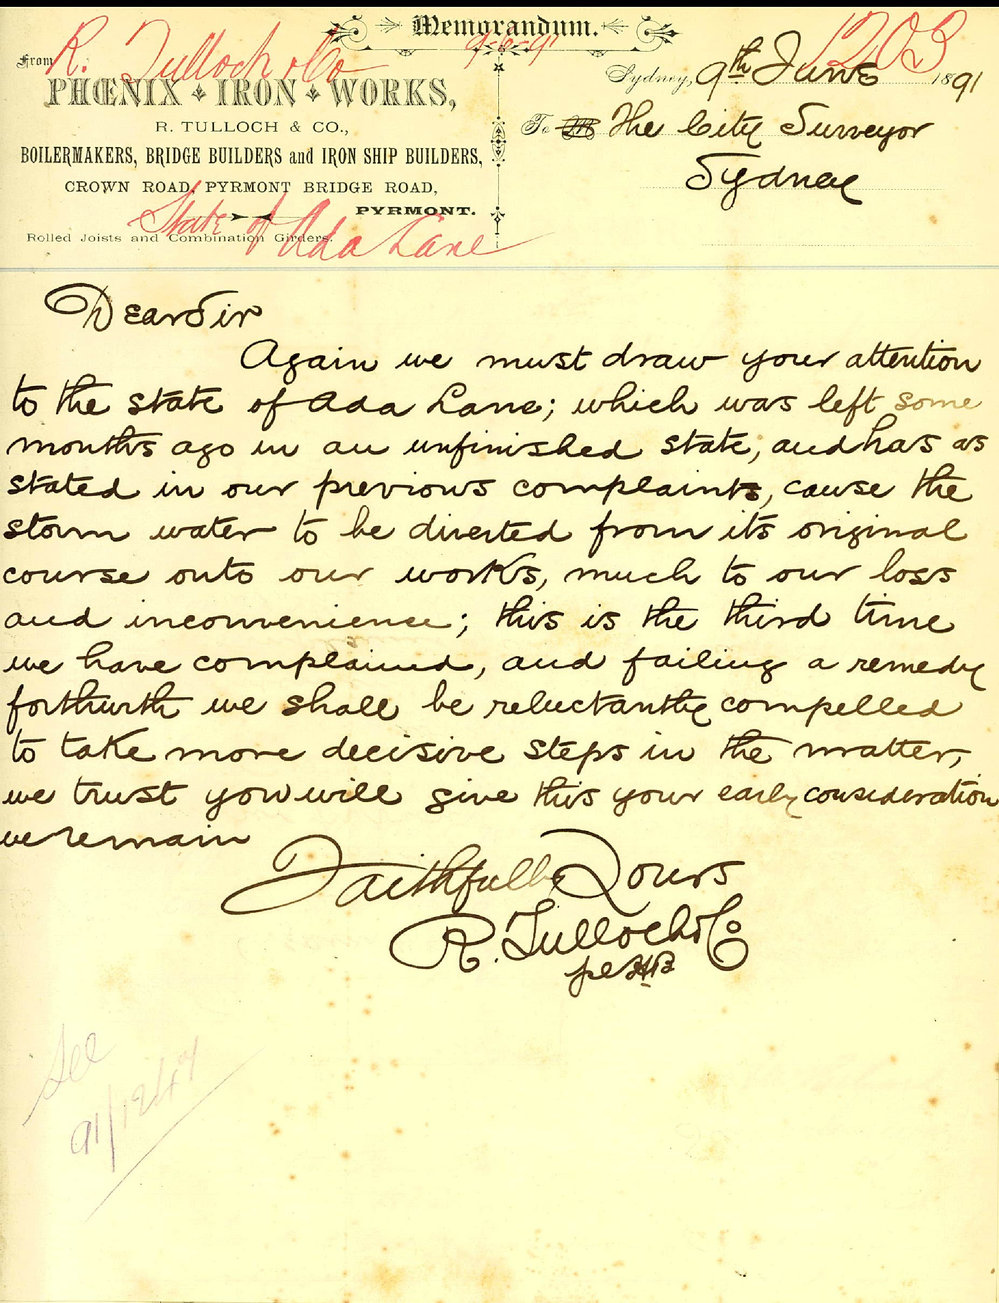 Memorandum.
From
R. Tulloch & Co
9-6-91
1203
PHŒNIX IRON WORKS,
R. TULLOCH & CO.,
BOILERMAKERS, BRIDGE BUILDERS and IRON SHIP BUILDERS,
CROWN ROAD, PYRMONT BRIDGE ROAD,
PYRMONT.
Rolled Joists and Combination Girders.
State of
Ada Lane
Sydney, 9th June 1891
To The City Surveyor
Sydney
Dear Sir
Again we must draw your attention
to the state of Ada Lane; which was left some
months ago in an unfinished state, and has as
stated in our previous complaints, cause the
storm water to be diverted from its original
course onto our works, much to our loss
and inconvenience; this is the third time
we have complained, and failing a remedy
forthwith we shall be reluctantly compelled
to take more decisive steps in the matter,
we trust you will give this your early consideration
we remain
Faithfully Yours
R. Tulloch & Co
See